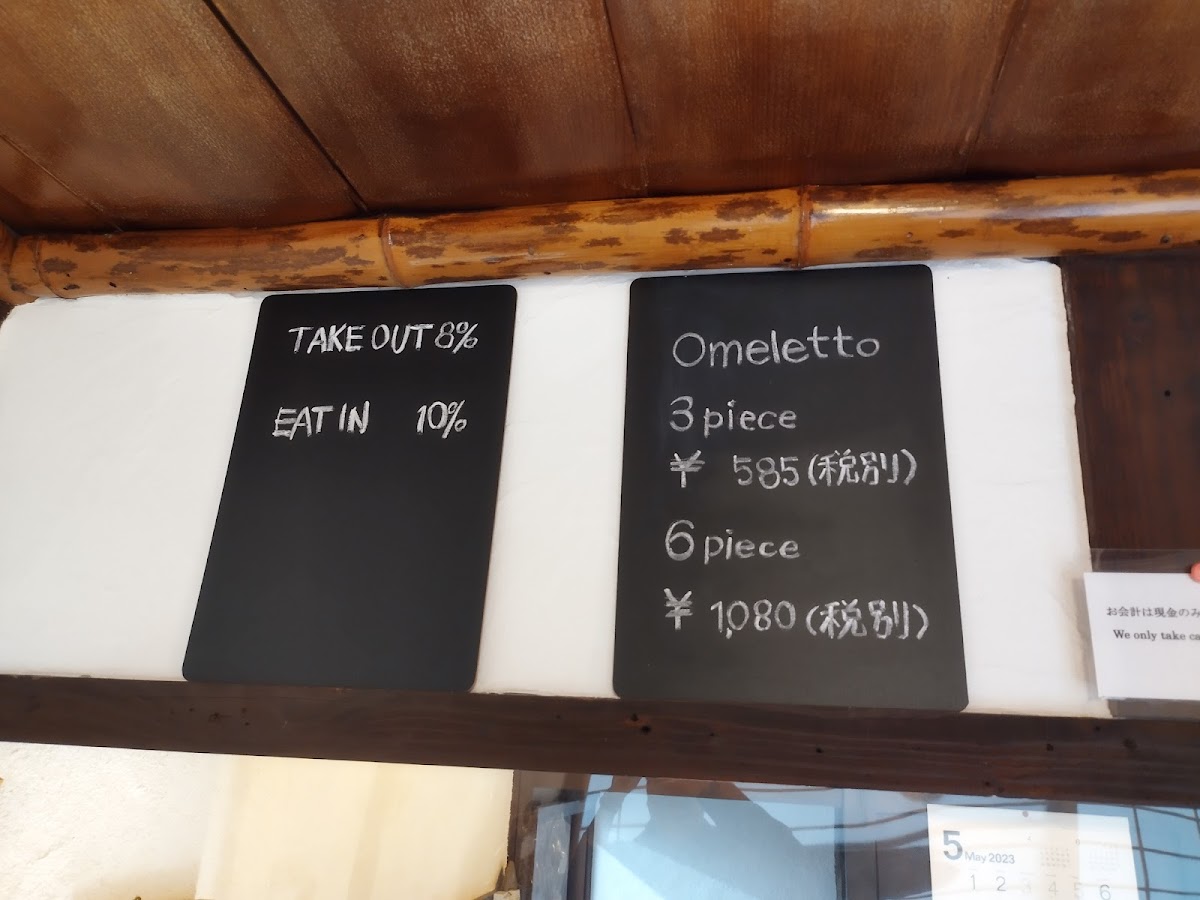 TAKE OUT 8%
EAT IN 10%
Omeletto
3 piece
¥ 585 (税別)
6 piece
¥ 1,080 (税別)
お会計は現金のみ
We only take
5 May 2023
1 2 3 4 5 6